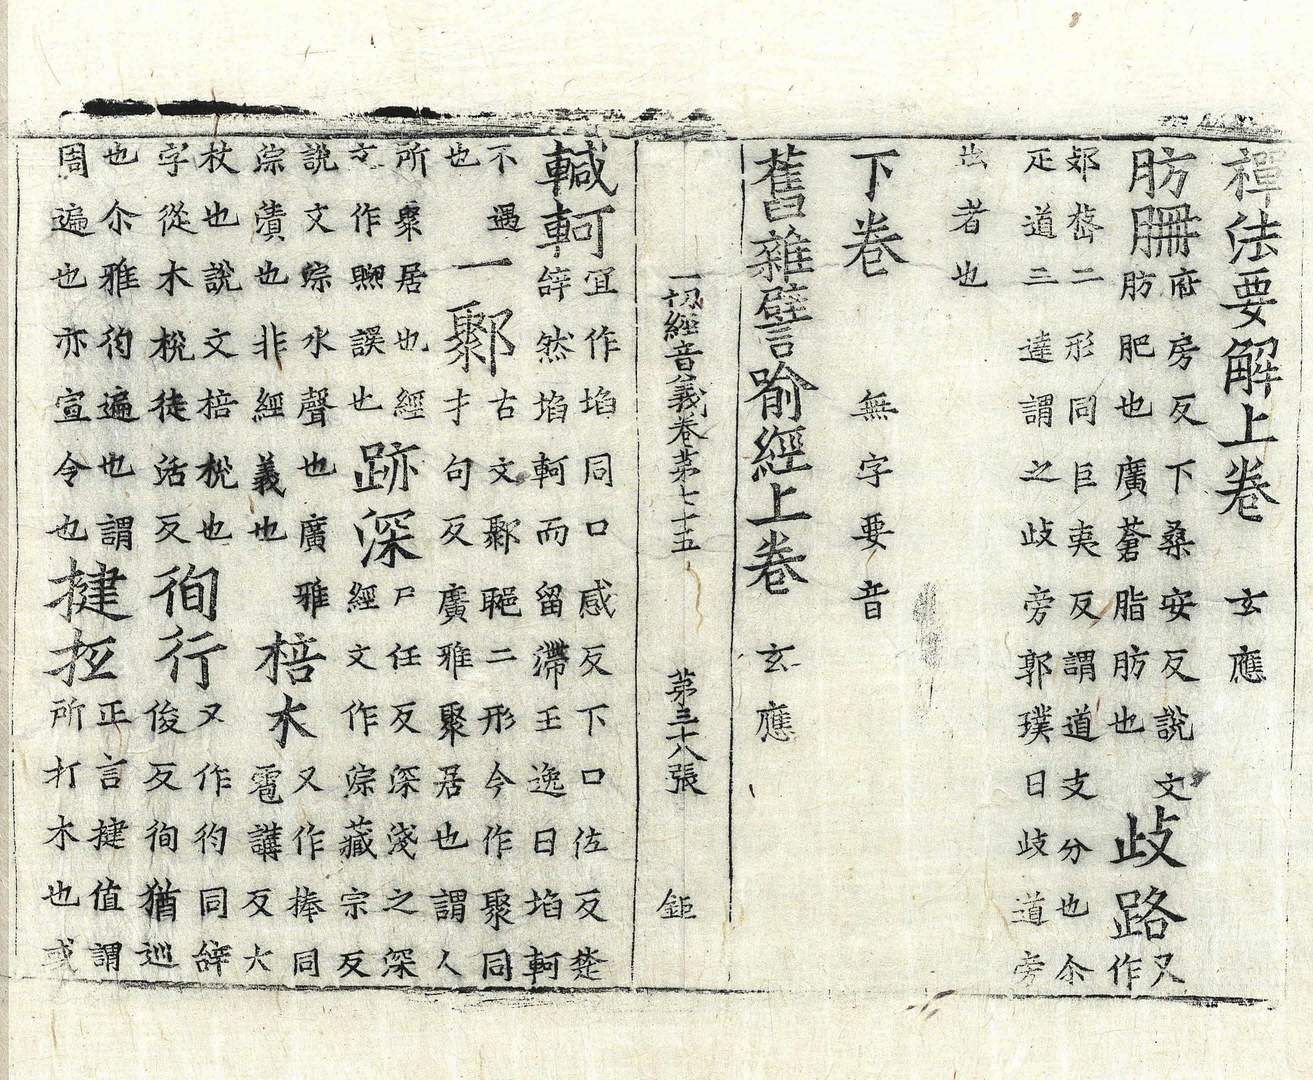 禪法要解上卷 玄應
肪
府房反下桑安反說文
肪肥也廣蒼脂肪也
歧路
又
作
郊二形同巨夷反謂道支分也尒
疋道二達謂之歧旁郭璞曰歧道旁
出者也
下卷 無字要音
舊雜譬喻經上卷 玄應
一切經音義卷第七十五 第三十八張 鉅
轗軻
宜作埳同口感反下口佐反楚
辝然埳軻而留滯王逸曰埳軻
不遇
也
一鄹
古文鄹二形今作聚同
才句反廣雅聚居也謂人
所聚居也經
文作誤也
跡深
尸任反深淺之深
經文作淙藏宗反
說文淙水聲也廣雅
淙漬也非經義也
棓木
又作捧同
雹講反大
杖也說文棓梲也
字從木梲徒活反
徇行
又作彴同辝
俊反徇猶巡
也尒雅彴遍也謂
周遍也亦宣令也
揵抠
正言揵值謂
所打木也或